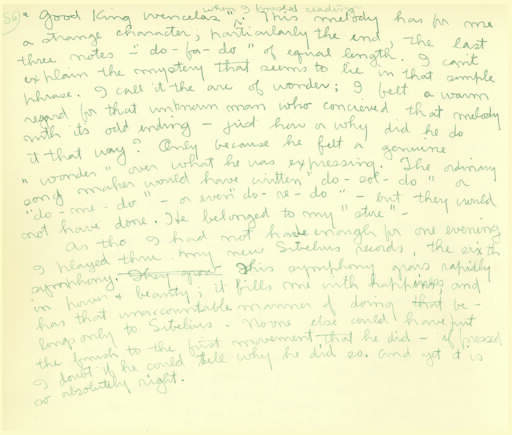 56
when I finished reading
"Good King Wenceslas": This melody has for me
a strange character, particularly the end, the last
three notes – "do-fa-do" of equal length. I can't
explain the mystery that seems to lie in that simple
phrase. I call it the arc of wonder; I felt a warm
regard for that unknown man who conceived that melody
with its odd ending – just how or why did he do
it that way? Only because he felt a genuine
"wonder" over what he was expressing. The ordinary
song maker would have written "do-sol-do" or
"do-me-do" – or even "do-re-do" – but they would
not have done. He belonged to my "eture" –
As tho I had not had enough for one evening
I played thru my new Sibelius records, the sixth
symphony. They goes This symphony grows rapidly
in power & beauty; it fills me with happiness, and
has that unaccountable manner of doing that be-
longs only to Sibelius – No one else could have put
the finish to the first movement that he did – if pressed
I doubt if he could tell why he did so. and yet it is
so absolutely right.